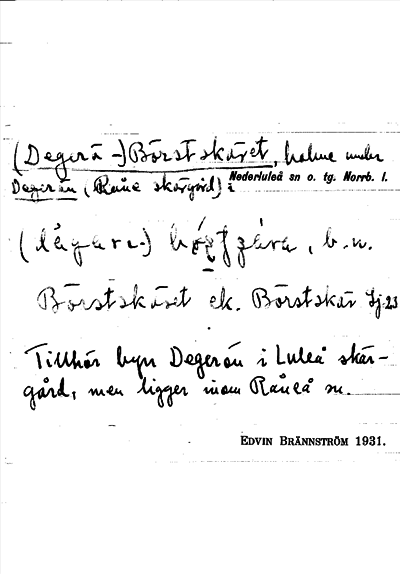 (Degerö-)Börstskäret, holme under
Degerön, (Råne skärgård) i Nederluleå sn o. tg. Norrb. l.
b.n.
Börstskäret ek. Börstskär Sj. 23
Tillhör byn Degerön i Luleå skär-
gård, men ligger inom Råneå sn.
EDVIN BRÄNNSTRÖM 1931.